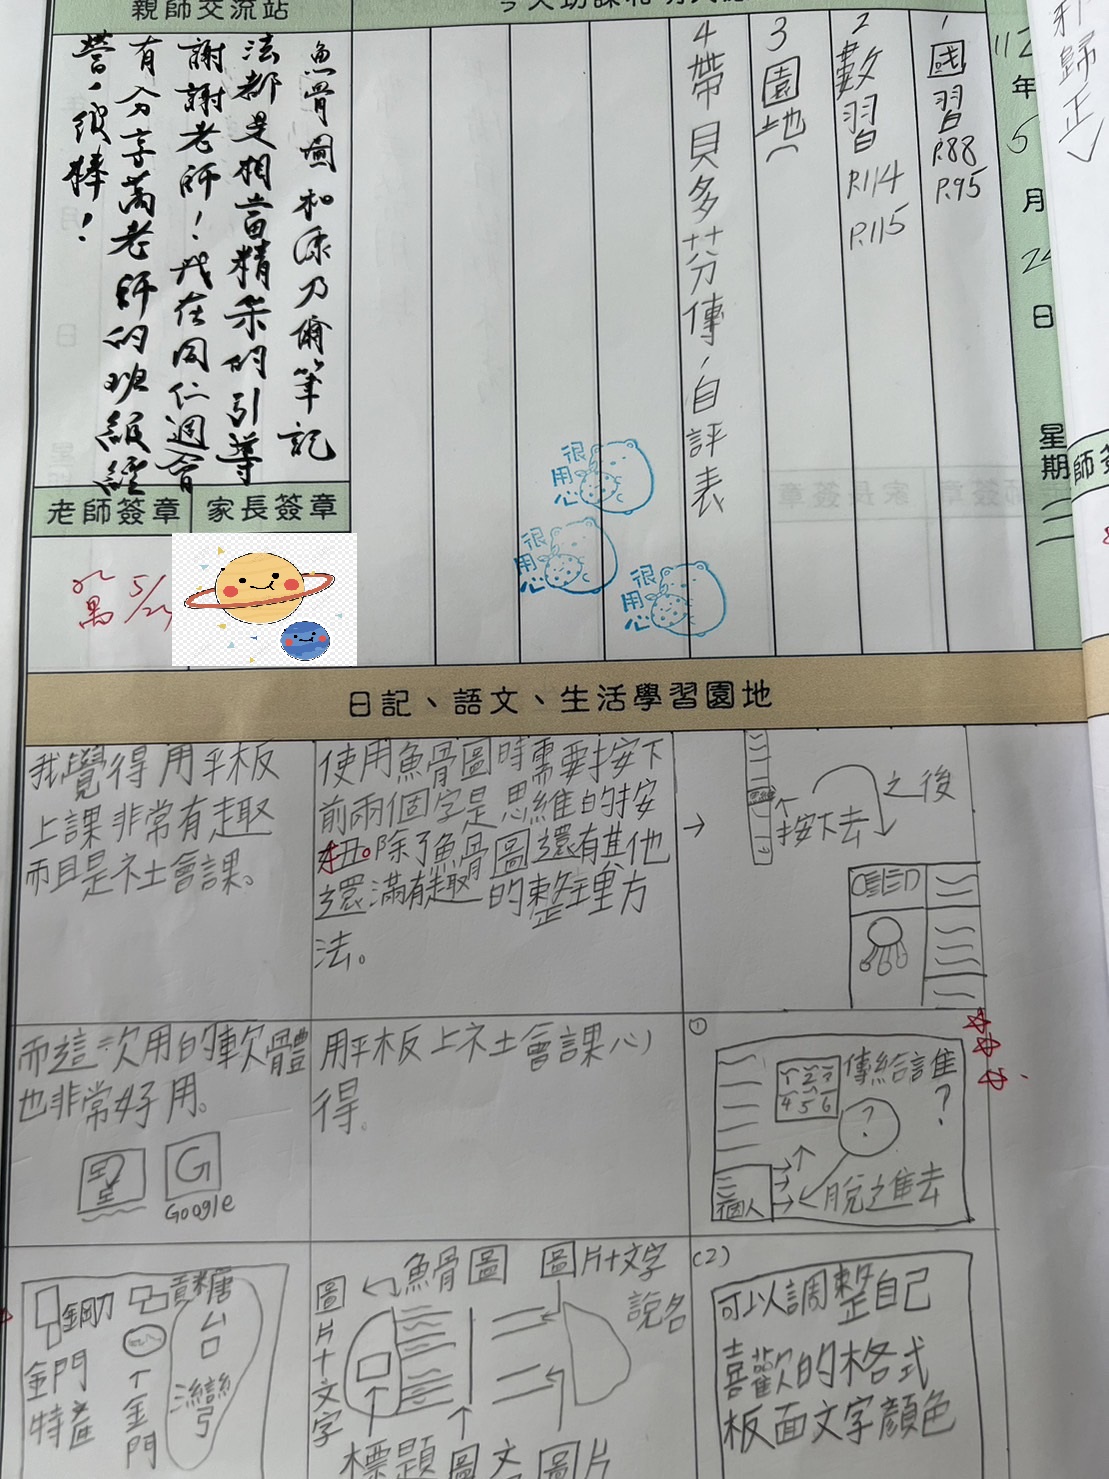 親師交流站
112年5月24日 星期二
1 國習 P.88 P.95
2 數習 P.114 P.115
3 園地(
4 帶貝多芬傳、自評表
魚骨圖和康乃爾筆記
法都是相當精采的引導
謝謝老師！我在同仁週會
有分享萬老師的班級經
營，很棒！
老師簽章
家長簽章
萬 5/25
很用心
很用心
很用心
日記、語文、生活學習園地
我覺得用平板
上課非常有趣
而且是社會課。
使用魚骨圖時需要按下
前兩個字是思維的按
鈕。除了魚骨圖還有其他
還滿有趣的整理方
法。
按下去
之後
而這次用的軟體
也非常好用。
Google
用平板上社會課心
得
①
1 2 3
4 5 6
傳給誰
?
?
個人
脫之進去
鋼刀
金門
特產
貢糖
金門
台灣
魚骨圖
圖片+文字
說名
圖片+文字
標題
圖文
圖片
(2)
可以調整自己
喜歡的格式
板面文字顏色